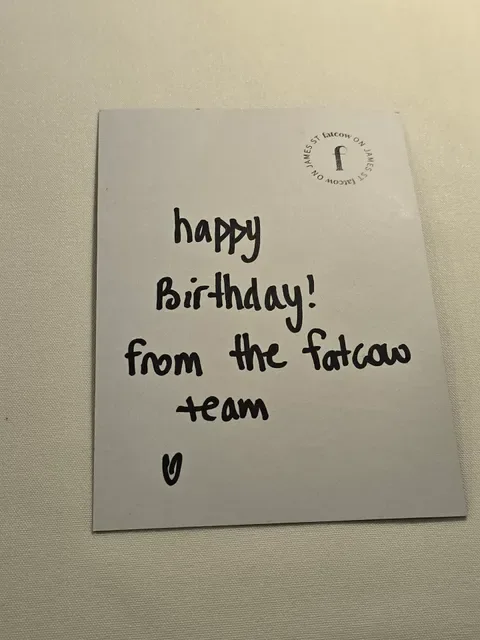 fatcow ON JAMES ST fatcow ON JAMES ST
f
happy
Birthday!
from the fatcow
team